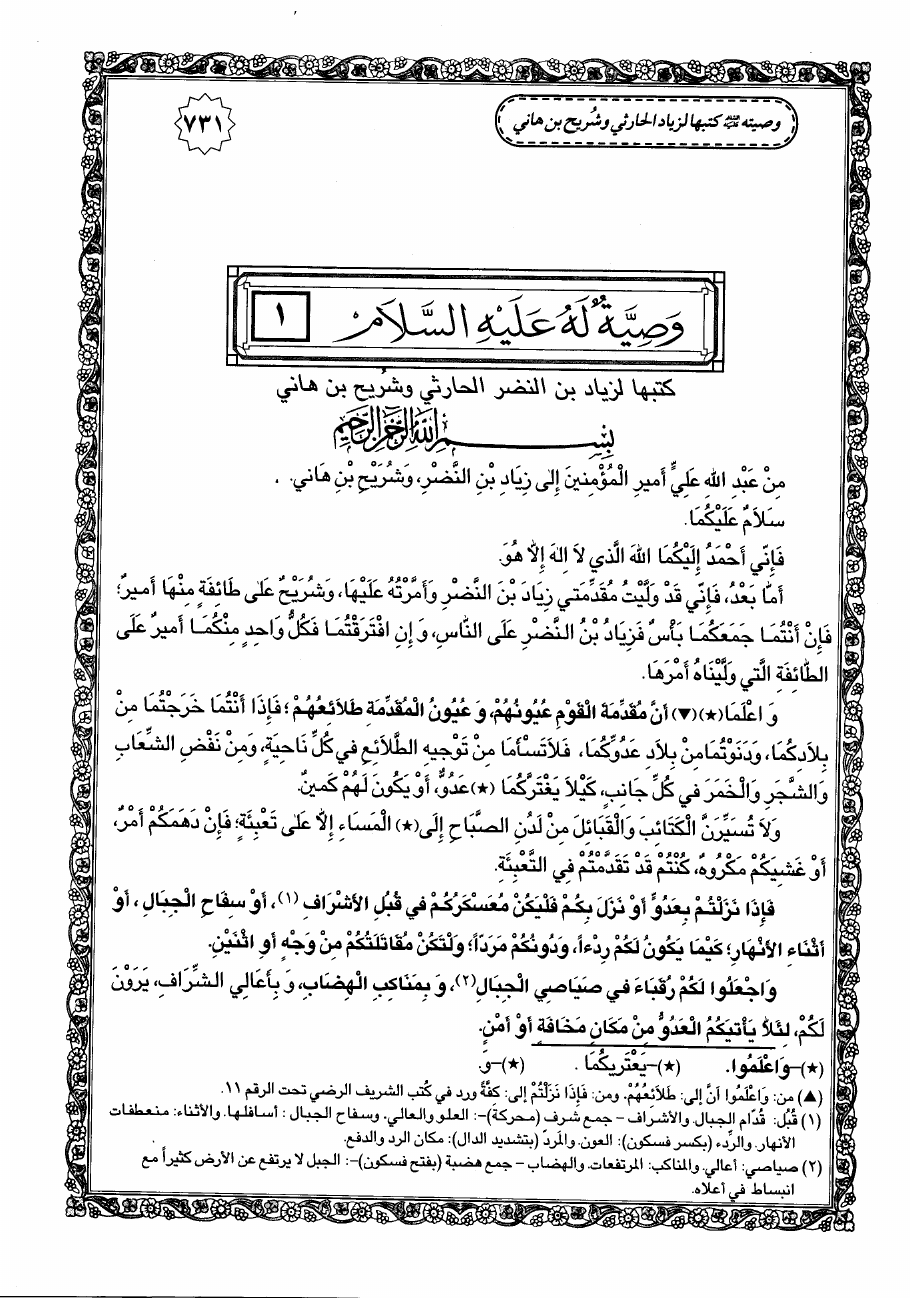 وصيته عليه السلام كتبها لزياد الحارثي وشُريح بن هاني
٧٣١
وَصِيَّةٌ لَهُ عَلَيْهِ السَّلَامُ
١
كتبها لزياد بن النضر الحارثي وشُريح بن هاني
بِسْمِ اللهِ الرَّحْمٰنِ الرَّحِيمِ
مِنْ عَبْدِ اللهِ عَلِيٍّ أَميرِ الْمُؤْمِنينَ إِلٰى زِيَادِ بْنِ النَّضْرِ، وَشُرَيْحِ بْنِ هَاني.
سَلَامٌ عَلَيْكُمَا.
فَإِنّي أَحْمَدُ إِلَيْكُمَا اللهَ الَّذي لَا اِلٰهَ إِلَّا هُوَ.
أَمَّا بَعْدُ، فَإِنّي قَدْ وَلَّيْتُ مُقَدِّمَتي زِيَادَ بْنَ النَّضْرِ وَأَمَّرْتُهُ عَلَيْهَا، وَشُرَيْحٌ عَلٰى طَائِفَةٍ مِنْهَا أَميرٌ؛
فَإِنْ أَنْتُمَا جَمَعَكُمَا بَأْسٌ فَزِيَادُ بْنُ النَّضْرِ عَلَى النَّاسِ، وَإِنِ افْتَرَقْتُمَا فَكُلُّ وَاحِدٍ مِنْكُمَا أَميرٌ عَلَى
الطَّائِفَةِ الَّتي وَلَّيْنَاهُ أَمْرَهَا.
وَ اعْلَمَا(★)(▼) أَنَّ مُقَدِّمَةَ الْقَوْمِ عُيُونُهُمْ، وَ عُيُونَ الْمُقَدِّمَةِ طَلَائِعُهُمْ؛ فَإِذَا أَنْتُمَا خَرَجْتُمَا مِنْ
بِلَادِكُمَا، وَدَنَوْتُمَا مِنْ بِلَادِ عَدُوِّكُمَا، فَلَا تَسْأَمَا مِنْ تَوْجيهِ الطَّلَائِعِ في كُلِّ نَاحِيَةٍ، وَمِنْ نَفْضِ الشِّعَابِ
وَالشَّجَرِ وَالْخَمَرِ في كُلِّ جَانِبٍ، كَيْلَا يَغْتَرَّكُمَا (★) عَدُوٌّ، أَوْ يَكُونَ لَهُمْ كَمينٌ.
وَلَا تُسَيِّرَنَّ الْكَتَائِبَ وَالْقَبَائِلَ مِنْ لَدُنِ الصَّبَاحِ إِلَى(★) الْمَسَاءِ إِلَّا عَلٰى تَعْبِئَةٍ؛ فَإِنْ دَهَمَكُمْ أَمْرٌ،
أَوْ غَشِيَكُمْ مَكْرُوهٌ، كُنْتُمْ قَدْ تَقَدَّمْتُمْ في التَّعْبِئَةِ.
فَإِذَا نَزَلْتُمْ بِعَدُوٍّ أَوْ نَزَلَ بِكُمْ فَلْيَكُنْ مُعَسْكَرُكُمْ في قُبُلِ الْأَشْرَافِ (١)، أَوْ سِفَاحِ الْجِبَالِ، أَوْ
أَثْنَاءِ الْأَنْهَارِ؛ كَيْمَا يَكُونَ لَكُمْ رِدْءاً، وَدُونَكُمْ مَرَدّاً؛ وَلْتَكُنْ مُقَاتَلَتُكُمْ مِنْ وَجْهٍ أَوِ اثْنَيْنِ.
وَاجْعَلُوا لَكُمْ رُقَبَاءَ في صَيَاصِي الْجِبَالِ(٢)، وَ بِمَنَاكِبِ الْهِضَابِ، وَ بِأَعَالِي الشِّرَافِ، يَرَوْنَ
لَكُمْ، لِئَلَّا يَأْتِيَكُمُ الْعَدُوُّ مِنْ مَكَانِ مَخَافَةٍ أَوْ أَمْنٍ.
(★)–وَاعْلَمُوا. (★)–يَعْتَرِيكُمَا. (★)–وَ.
(▲) من: وَاعْلَمُوا أَنَّ إلى: طَلَائِعُهُمْ. ومن: فَإِذَا نَزَلْتُمْ إلى: كفَّةً ورد في كُتب الشريف الرضي تحت الرقم ١١.
(١) قُبُل: قدّام الجبال. والأشراف – جمع شرف (محركة)–: العلو والعالي. وسفاح الجبال: أسافلها. والأثناء: منعطفات
الأنهار. والرِّدء (بكسر فسكون): العون. والمَردّ (بتشديد الدال): مكان الرد والدفع.
(٢) صياصي: أعالي. والمناكب: المرتفعات. والهضاب – جمع هضبة (بفتح فسكون)–: الجبل لا يرتفع عن الأرض كثيراً مع
انبساط في أعلاه.